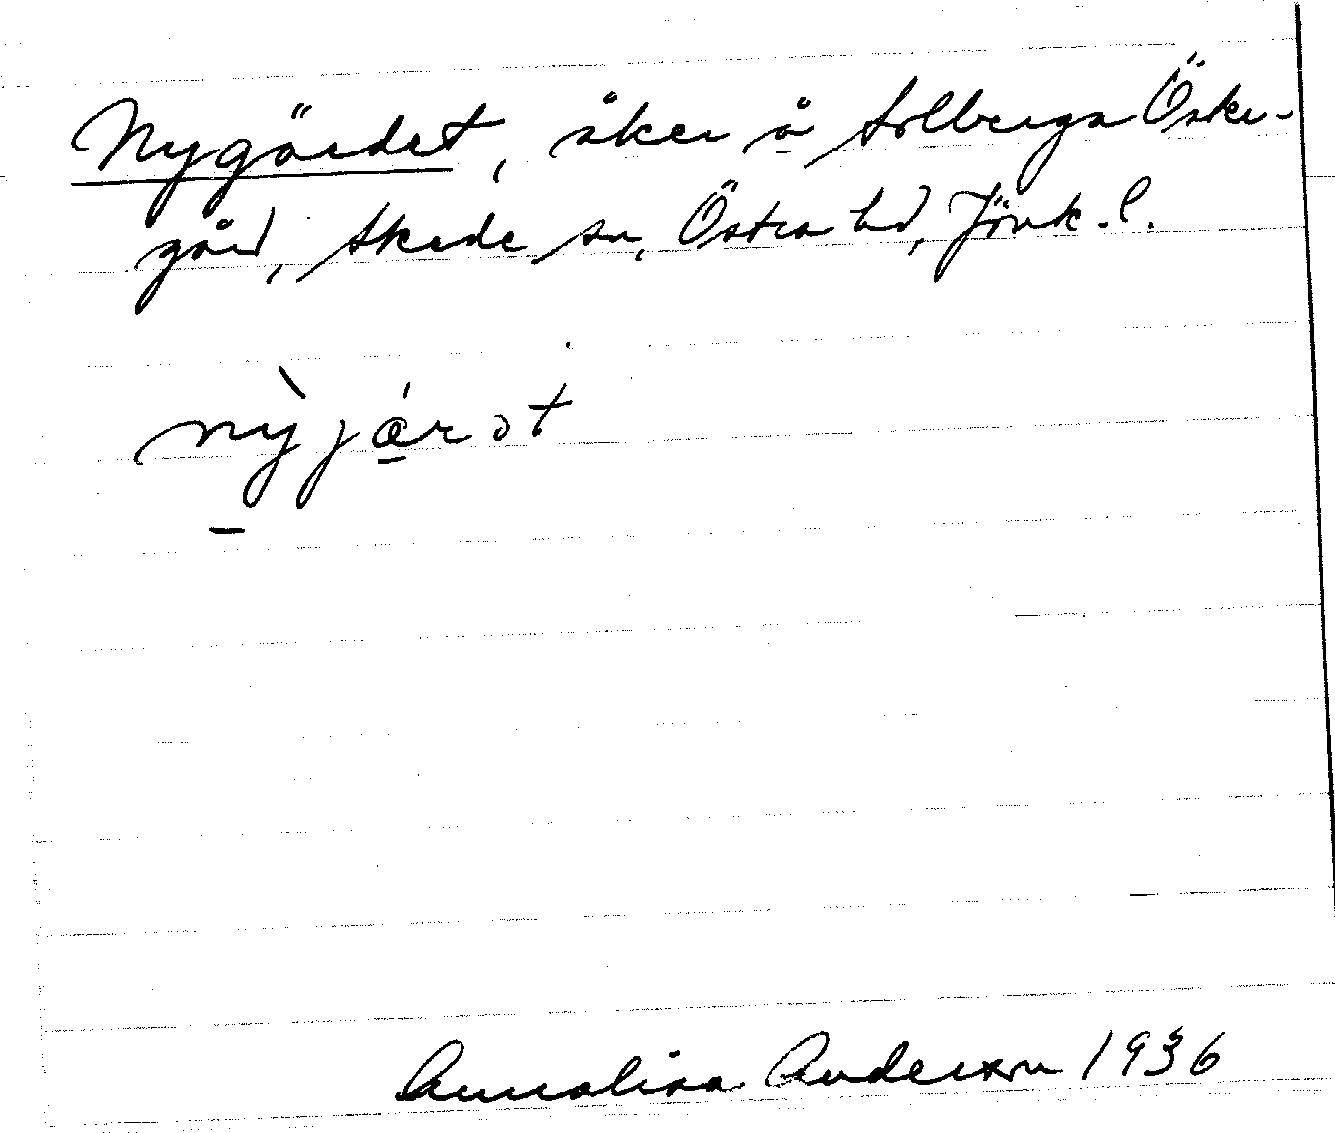 Nygärdet, åker å Solberga Öster-
gård, Skede sn, Östra hd, Jönk. l.
nỳjǽrət
Annalisa Anderson 1936